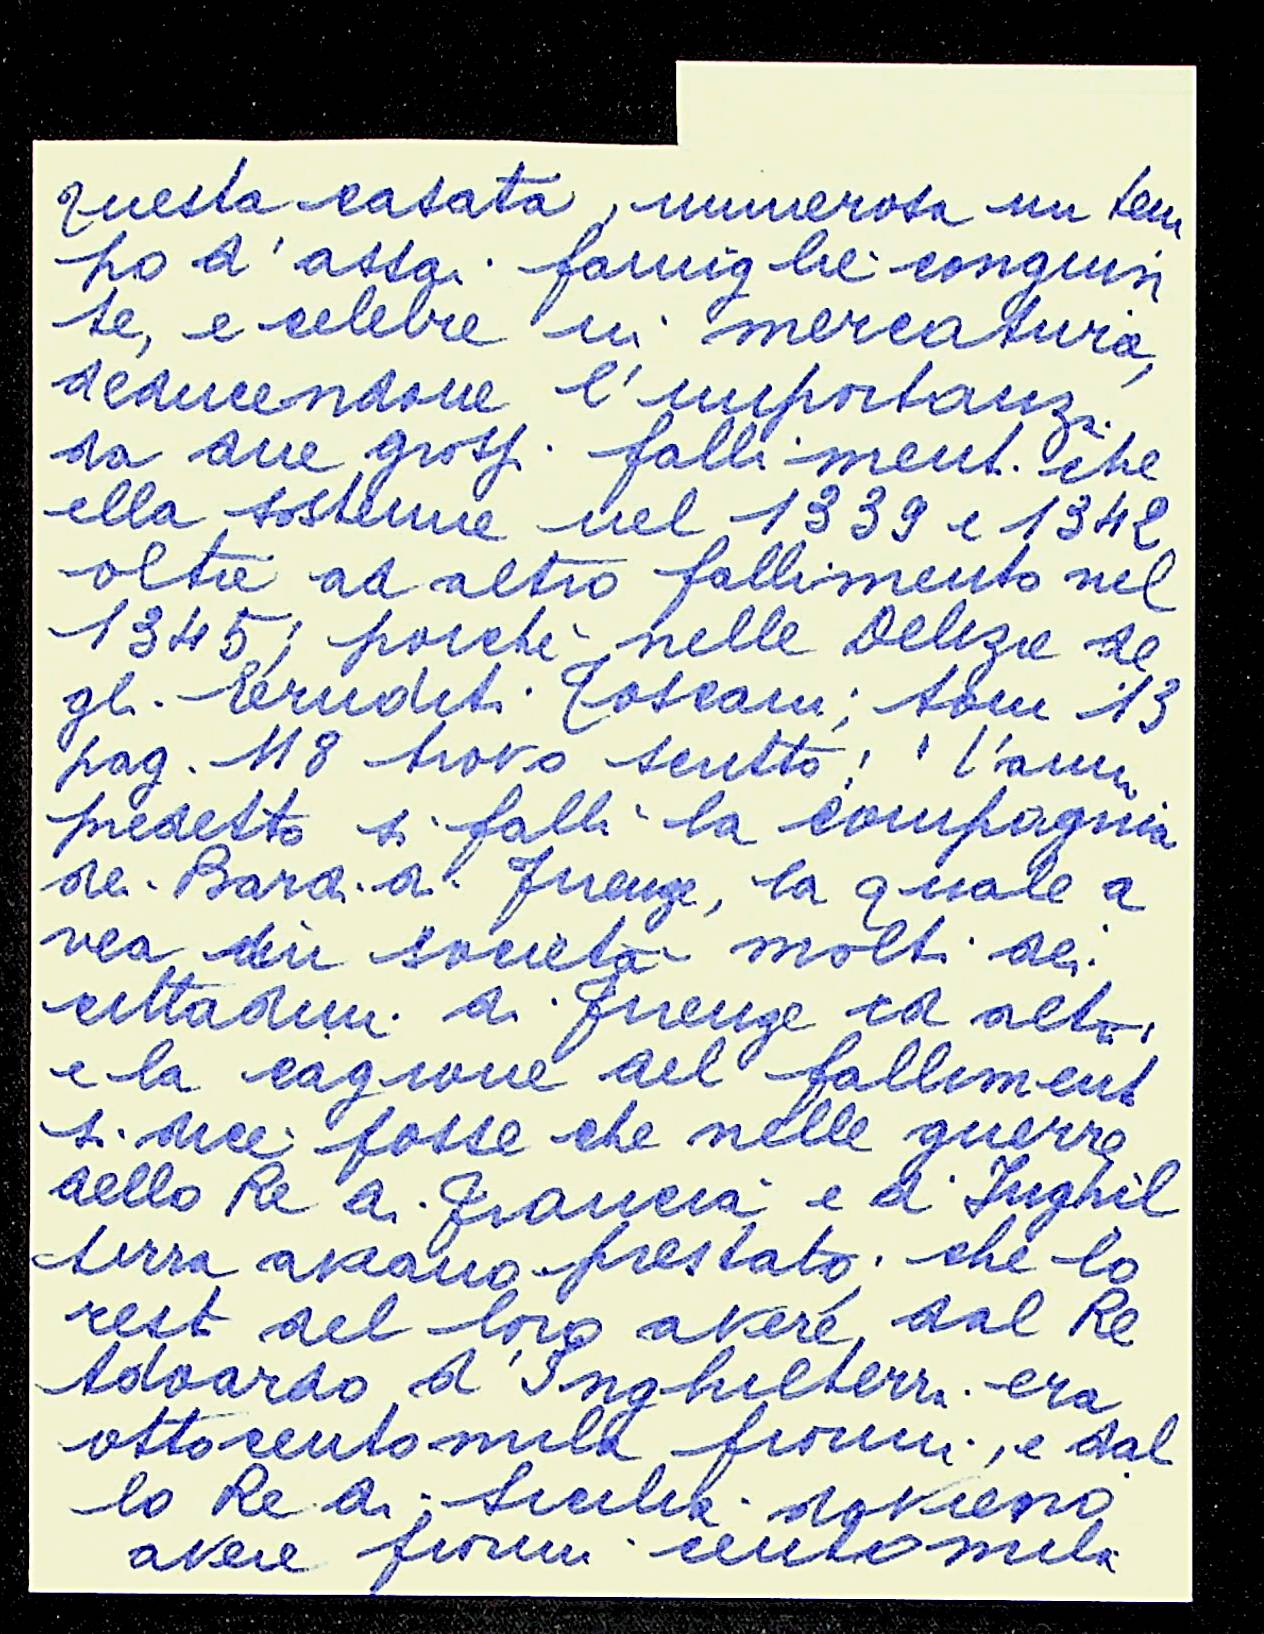 Questa casata, numerosa un tem
po d'assai famiglie congiun
te, e celebre in mercatura,
deducendone l'importanza
da due grossi fallimenti che
ella sostenne nel 1339 e 1342
oltre ad altro fallimento nel
1345; poichè nelle Delizie de
gli Eruditi Toscani; tom 13
pag. 118 trovo scritto: "l'anno
predetto si fallì la compagnia
dei Bardi di Firenze, la quale a
vea in società molti dei
cittadini di Firenze ed altri
e la cagione del falliment
si dice fosse che nelle guerre
dello Re di Francia e d'Inghil
terra aveano prestato che lo
rest del loro avere dal Re
Adoardo d'Inghilterra era
ottocentomila fiorini, e dal
lo Re di Sicilia dovieno
avere fiorini centomila